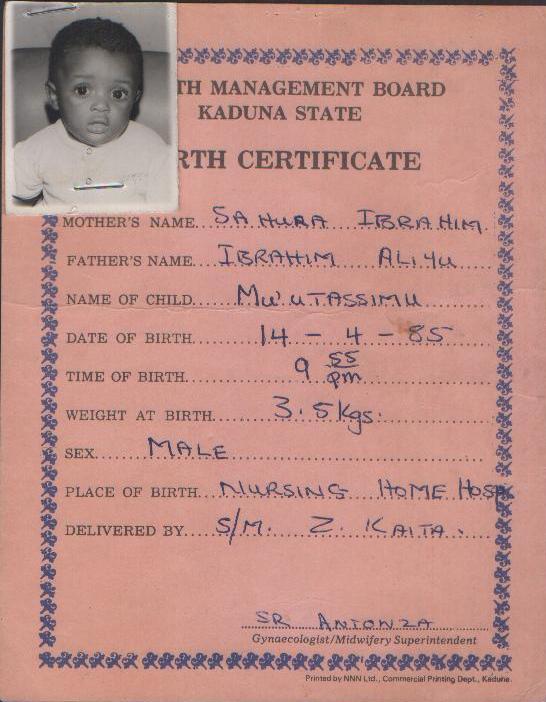 TH MANAGEMENT BOARD
KADUNA STATE
RTH CERTIFICATE
MOTHER'S NAME SAHURA IBRAHIM
FATHER'S NAME IBRAHIM ALIYU
NAME OF CHILD MU'UTASSIMU
DATE OF BIRTH 14 - 4 - 85
TIME OF BIRTH 9 55 pm
WEIGHT AT BIRTH 3.5kgs.
SEX MALE
PLACE OF BIRTH NURSING HOME HOSP
DELIVERED BY S/M. Z. KAITA.
SR ANTONZA
Gynaecologist/Midwifery Superintendent
Printed by NNN Ltd., Commercial Printing Dept., Kaduna.